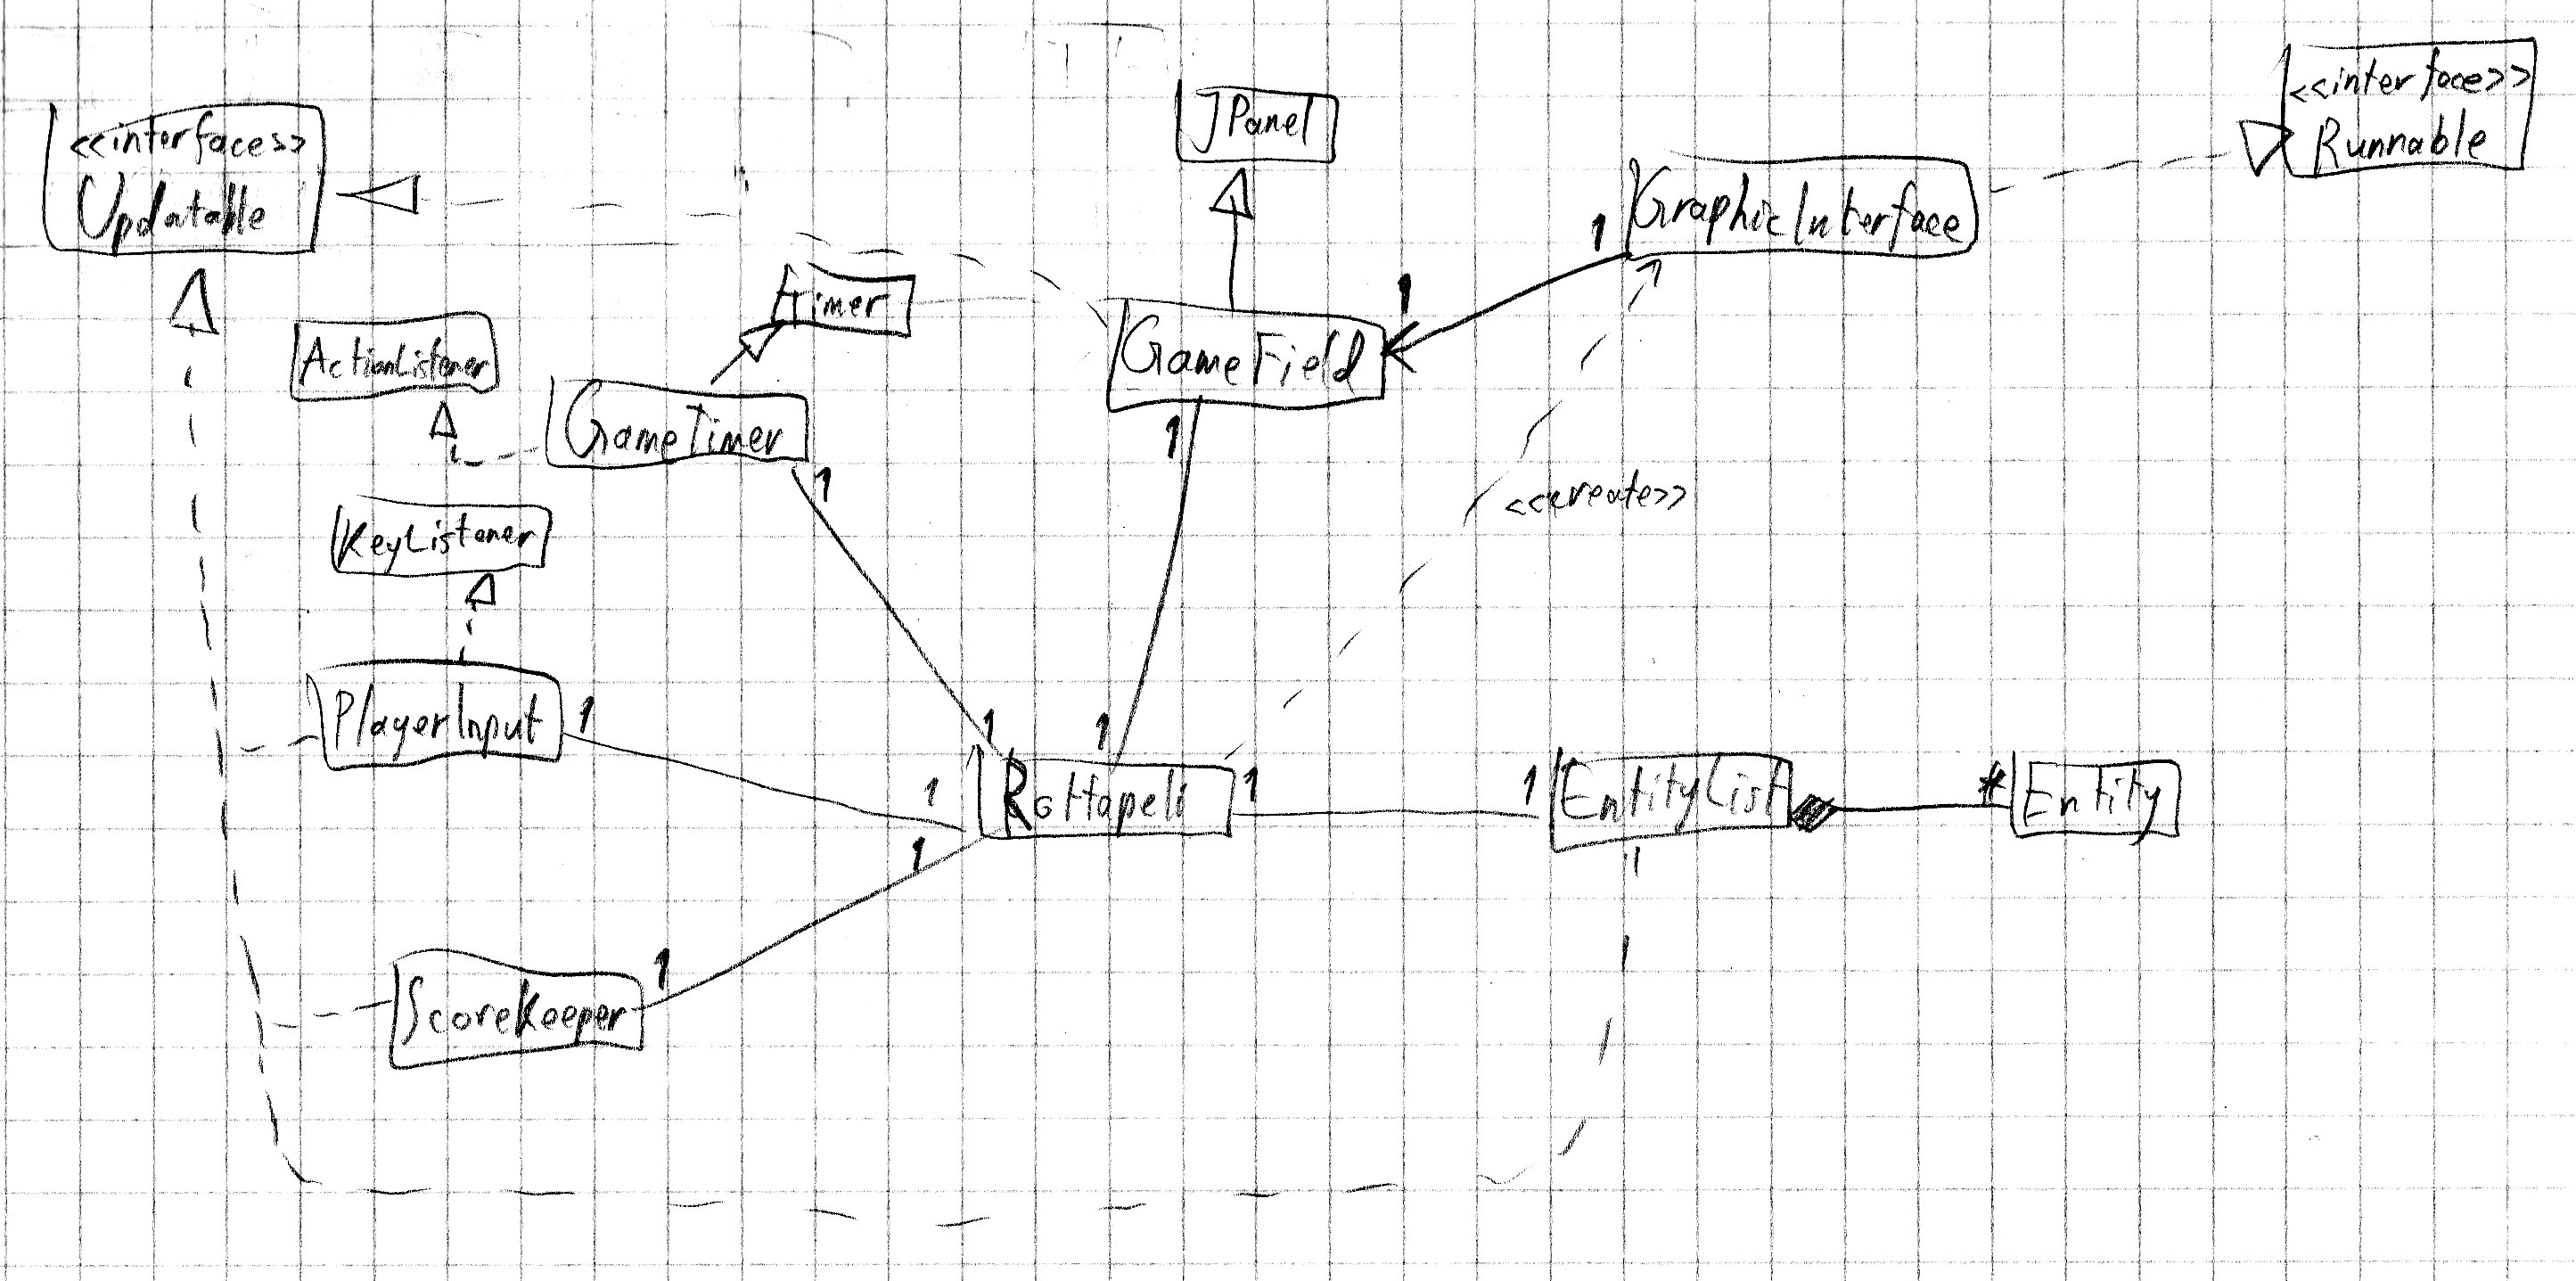 JPanel
<<interface>>
Runnable
<<interface>>
Updatable
GraphicInterface
1
Timer
1
ActionListener
GameField
GameTimer
1
1
<<create>>
KeyListener
PlayerInput
1
1
1
1
Rottapeli
1
1
EntityList
*
Entity
1
1
ScoreKeeper